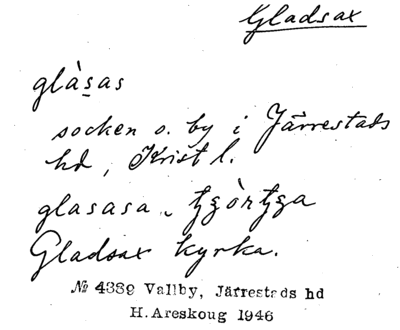 Gladsax
glàsas
socken o. by i Järrestads
hd, Krist l.
glasasa
Gladsax kyrka.
№ 4389 Vallby, Järrestads hd
H. Areskoug 1946